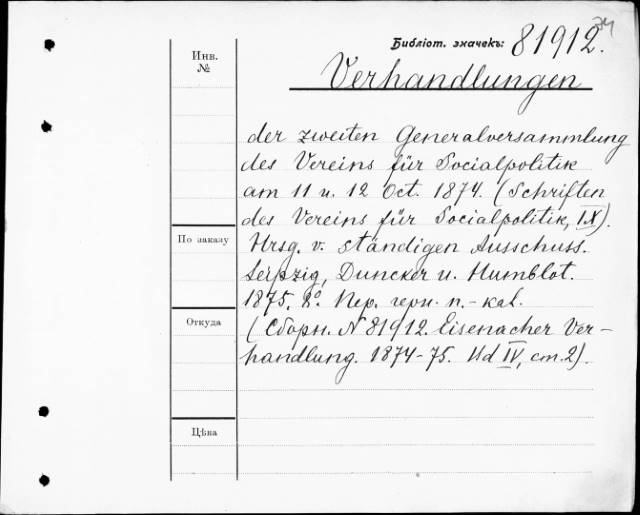 Библіот. значекъ: 81912.
34
Инв.
№
Verhandlungen
der zweiten Generalversammlung
des Vereins für Socialpolitik
am 11 u. 12 Oct. 1874. (Schriften
des Vereins für Socialpolitik, IX).
По заказу
Hrsg. v. ständigen Ausschuss.
Leipzig, Duncker u. Humblot.
1875. 8º. Пер. черн. п.-каl.
Откуда
(Сборн. № 81912. Eisenacher Ver-
handlung. 1874-75. Bd IV, ст. 2).
Цѣна